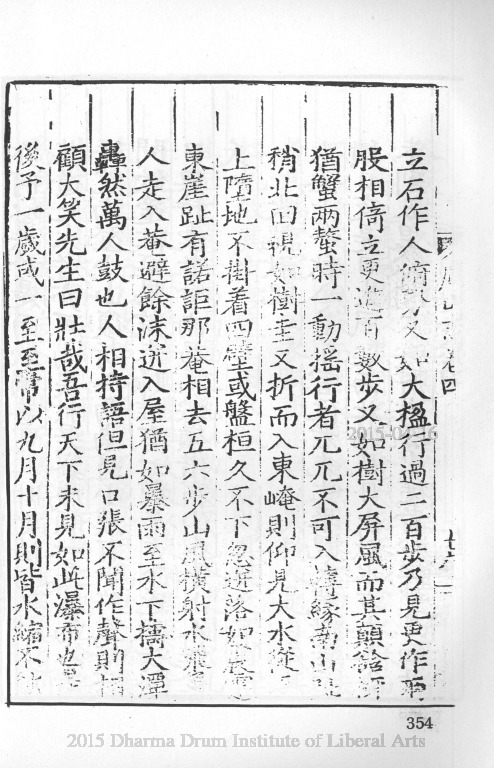 立石作人俯勢又如大楹行過二百步乃見更作兩
股相倚立更進百數步又如樹大屏風而其顛谽谺
猶蟹兩螯時一動搖行者兀兀不可入轉緣南山趾
稍北回視如樹圭又折而入東崦則仰見大水從
上墮地不掛着四壁或盤桓久不下忽迸落如震霆
東崖趾有諾詎那菴相去五六步山風橫射水飛
人走入菴避餘沫迸入屋猶如暴雨至水下擣大潭
轟然萬人鼓也人相持語但見口張不聞作聲則相
顧大笑先生曰壯哉吾行天下未見如此瀑布也是
後予一歲或一至至常以九月十月則皆水縮不能
山志卷四
354
2015 Dharma Drum Institute of Liberal Arts